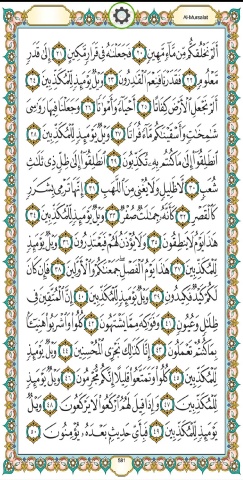 Al-Mursalat
أَلَمْ نَخْلُقكُّم مِّن مَّآءٍ مَّهِينٍ ٢٠ فَجَعَلْنَٰهُ فِى قَرَارٍ مَّكِينٍ ٢١ إِلَىٰ قَدَرٍ
مَّعْلُومٍ ٢٢ فَقَدَرْنَا فَنِعْمَ ٱلْقَٰدِرُونَ ٢٣ وَيْلٌ يَوْمَئِذٍ لِّلْمُكَذِّبِينَ ٢٤
أَلَمْ نَجْعَلِ ٱلْأَرْضَ كِفَاتًا ٢٥ أَحْيَآءً وَأَمْوَٰتًا ٢٦ وَجَعَلْنَا فِيهَا رَوَٰسِىَ
شَٰمِخَٰتٍ وَأَسْقَيْنَٰكُم مَّآءً فُرَاتًا ٢٧ وَيْلٌ يَوْمَئِذٍ لِّلْمُكَذِّبِينَ ٢٨
ٱنطَلِقُوٓا۟ إِلَىٰ مَا كُنتُم بِهِۦ تُكَذِّبُونَ ٢٩ ٱنطَلِقُوٓا۟ إِلَىٰ ظِلٍّ ذِى ثَلَٰثِ
شُعَبٍ ٣٠ لَّا ظَلِيلٍ وَلَا يُغْنِى مِنَ ٱللَّهَبِ ٣١ إِنَّهَا تَرْمِى بِشَرَرٍ
كَٱلْقَصْرِ ٣٢ كَأَنَّهُۥ جِمَٰلَتٌ صُفْرٌ ٣٣ وَيْلٌ يَوْمَئِذٍ لِّلْمُكَذِّبِينَ ٣٤
هَٰذَا يَوْمُ لَا يَنطِقُونَ ٣٥ وَلَا يُؤْذَنُ لَهُمْ فَيَعْتَذِرُونَ ٣٦ وَيْلٌ يَوْمَئِذٍ
لِّلْمُكَذِّبِينَ ٣٧ هَٰذَا يَوْمُ ٱلْفَصْلِ جَمَعْنَٰكُمْ وَٱلْأَوَّلِينَ ٣٨ فَإِن كَانَ
لَكُمْ كَيْدٌ فَكِيدُونِ ٣٩ وَيْلٌ يَوْمَئِذٍ لِّلْمُكَذِّبِينَ ٤٠ إِنَّ ٱلْمُتَّقِينَ فِى
ظِلَٰلٍ وَعُيُونٍ ٤١ وَفَوَٰكِهَ مِمَّا يَشْتَهُونَ ٤٢ كُلُوا۟ وَٱشْرَبُوا۟ هَنِيٓـًٔۢا
بِمَا كُنتُمْ تَعْمَلُونَ ٤٣ إِنَّا كَذَٰلِكَ نَجْزِى ٱلْمُحْسِنِينَ ٤٤ وَيْلٌ يَوْمَئِذٍ
لِّلْمُكَذِّبِينَ ٤٥ كُلُوا۟ وَتَمَتَّعُوا۟ قَلِيلًا إِنَّكُم مُّجْرِمُونَ ٤٦ وَيْلٌ يَوْمَئِذٍ
لِّلْمُكَذِّبِينَ ٤٧ وَإِذَا قِيلَ لَهُمُ ٱرْكَعُوا۟ لَا يَرْكَعُونَ ٤٨ وَيْلٌ
يَوْمَئِذٍ لِّلْمُكَذِّبِينَ ٤٩ فَبِأَىِّ حَدِيثٍۭ بَعْدَهُۥ يُؤْمِنُونَ ٥٠
581